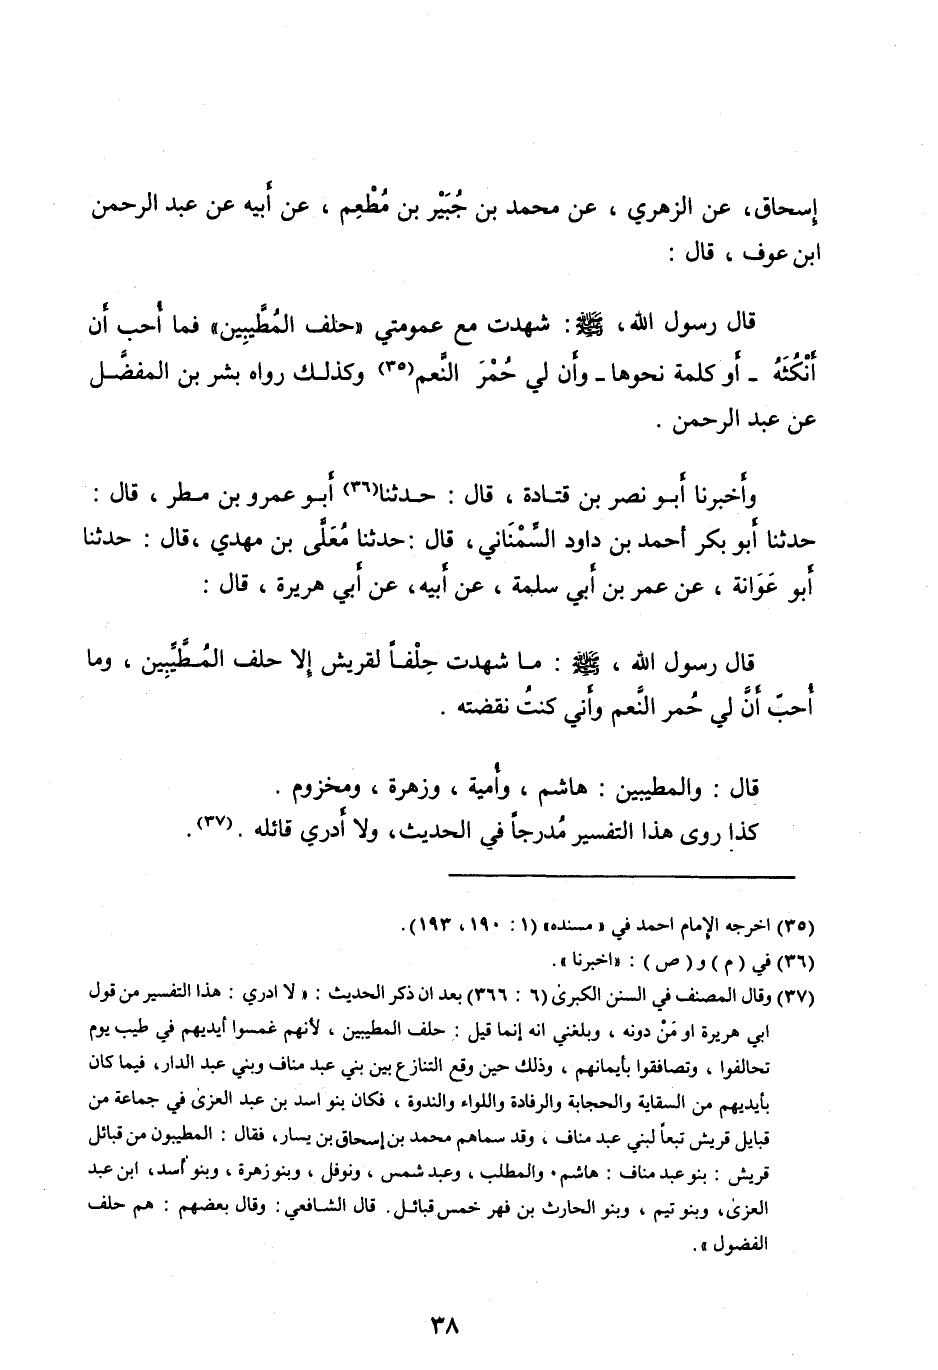 إسحاق، عن الزهري ، عن محمد بن جُبَيْر بن مُطْعِم ، عن أَبيه عن عبد الرحمن
ابن عوف ، قال :
قال رسول الله، ﷺ: شهدت مع عمومتي «حلف المُطَّيبين» فما أُحب أَن
أَنْكُثَهُ ـ أَو كلمة نحوها ـ وأَن لي حُمْرَ النَّعم(٣٥) وكذلك رواه بشر بن المفضَّل
عن عبد الرحمن .
وأَخبرنا أَبو نصر بن قتادة ، قال : حدثنا(٣٦) أَبو عمرو بن مطر ، قال :
حدثنا أَبو بكر أحمد بن داود السِّمْنَاني، قال :حدثنا مُعَلَّى بن مهدي ،قال : حدثنا
أَبو عَوَانة ، عن عمر بن أَبي سلمة ، عن أَبيه، عن أَبي هريرة ، قال :
قال رسول الله ، ﷺ : ما شهدت حِلْفاً لقريش إلا حلف المُطَّيِّبِين ، وما
أُحبّ أَنَّ لي حُمر النَّعم وأَني كنتُ نقضته .
قال : والمطيبين : هاشم ، وأُمية ، وزهرة ، ومخزوم .
كذا روى هذا التفسير مُدرجاً في الحديث، ولا أَدري قائله .(٣٧).
(٣٥) اخرجه الإمام احمد في « مسنده» (١ : ١٩٠ ، ١٩٣).
(٣٦) في ( م ) و( ص ) : «اخبرنا ».
(٣٧) وقال المصنف في السنن الكبرىٰ (٦ : ٣٦٦) بعد ان ذكر الحديث : « لا ادري : هذا التفسير من قول
ابي هريرة او مَنْ دونه ، وبلغني انه إنما قيل : حلف المطيبين ، لأنهم غمسوا أيديهم في طيب يوم
تحالفوا ، وتصافقوا بأيمانهم ، وذلك حين وقع التنازع بين بني عبد مناف وبني عبد الدار، فيما كان
بأيديهم من السقاية والحجابة والرفادة واللواء والندوة ، فكان بنو اسد بن عبد العزىٰ في جماعة من
قبايل قريش تبعاً لبني عبد مناف ، وقد سماهم محمد بن إسحاق بن يسار، فقال : المطيبون من قبائل
قريش : بنو عبد مناف : هاشم، والمطلب ، وعبد شمس ، ونوفل ، وبنو زهرة ، وبنو أسد، ابن عبد
العزىٰ، وبنو تيم ، وبنو الحارث بن فهر خمس قبائل. قال الشافعي : وقال بعضهم : هم حلف
الفضول ».
٣٨